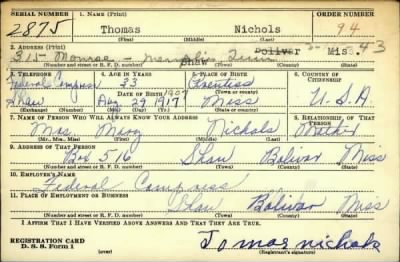 SERIAL NUMBER 1. NAME (Print) ORDER NUMBER
2875 Thomas Nichols 94
(First) (Middle) (Last)
2. ADDRESS (Print) Bolivar Mis. 43
315 Monroe - Memphis Tenn
Shaw
(Number and street or R. F. D. number) (Town) (County) (State)
3. TELEPHONE 4. AGE IN YEARS 5. PLACE OF BIRTH 6. COUNTRY OF CITIZENSHIP
Federal Compress 33 Prentiss
DATE OF BIRTH 1907
Shaw Aug 29 1917 Miss U.S.A
(Exchange) (Number) (Mo.) (Day) (Yr.) (State or country)
7. NAME OF PERSON WHO WILL ALWAYS KNOW YOUR ADDRESS 8. RELATIONSHIP OF THAT PERSON
Mrs. Mary Nichols Mother
(Mr., Mrs., Miss) (First) (Middle) (Last)
9. ADDRESS OF THAT PERSON
Box 516 Shaw Bolivar Miss
(Number and street or R. F. D. number) (Town) (County) (State)
10. EMPLOYER'S NAME
Federal Compress
11. PLACE OF EMPLOYMENT OR BUSINESS
Shaw Bolivar Miss
(Number and street or R. F. D. number) (Town) (County) (State)
I AFFIRM THAT I HAVE VERIFIED ABOVE ANSWERS AND THAT THEY ARE TRUE.
REGISTRATION CARD
D. S. S. Form 1 Tomas nichols
(Registrant's signature)